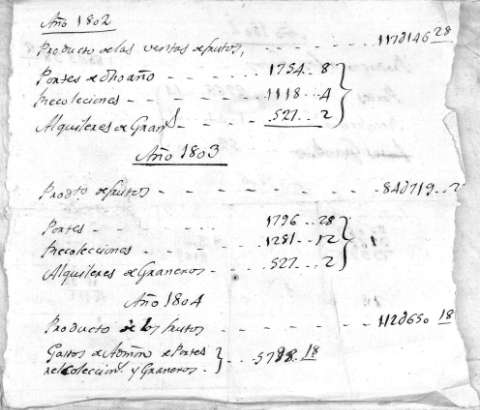 Año 1802
Producto de las ventas de frutos, - - - 117∂146 28
Portes de dho año - - - - 1754..8
Recoleciones - - - - 1118..4
Alquileres de Gran.s - - - - 527..2
Año 1803
Prod.to de frutos - - - - 84∂719..2
Portes - - - - 1796..28
Recolecciones - - - 1281..12
Alquileres de Graneros - - 527..2
Año 1804
Producto de los frutos - - - - 112∂650 18
Gastos de Admon de Portes ... 5798 18
recoleccion.s y Graneros.